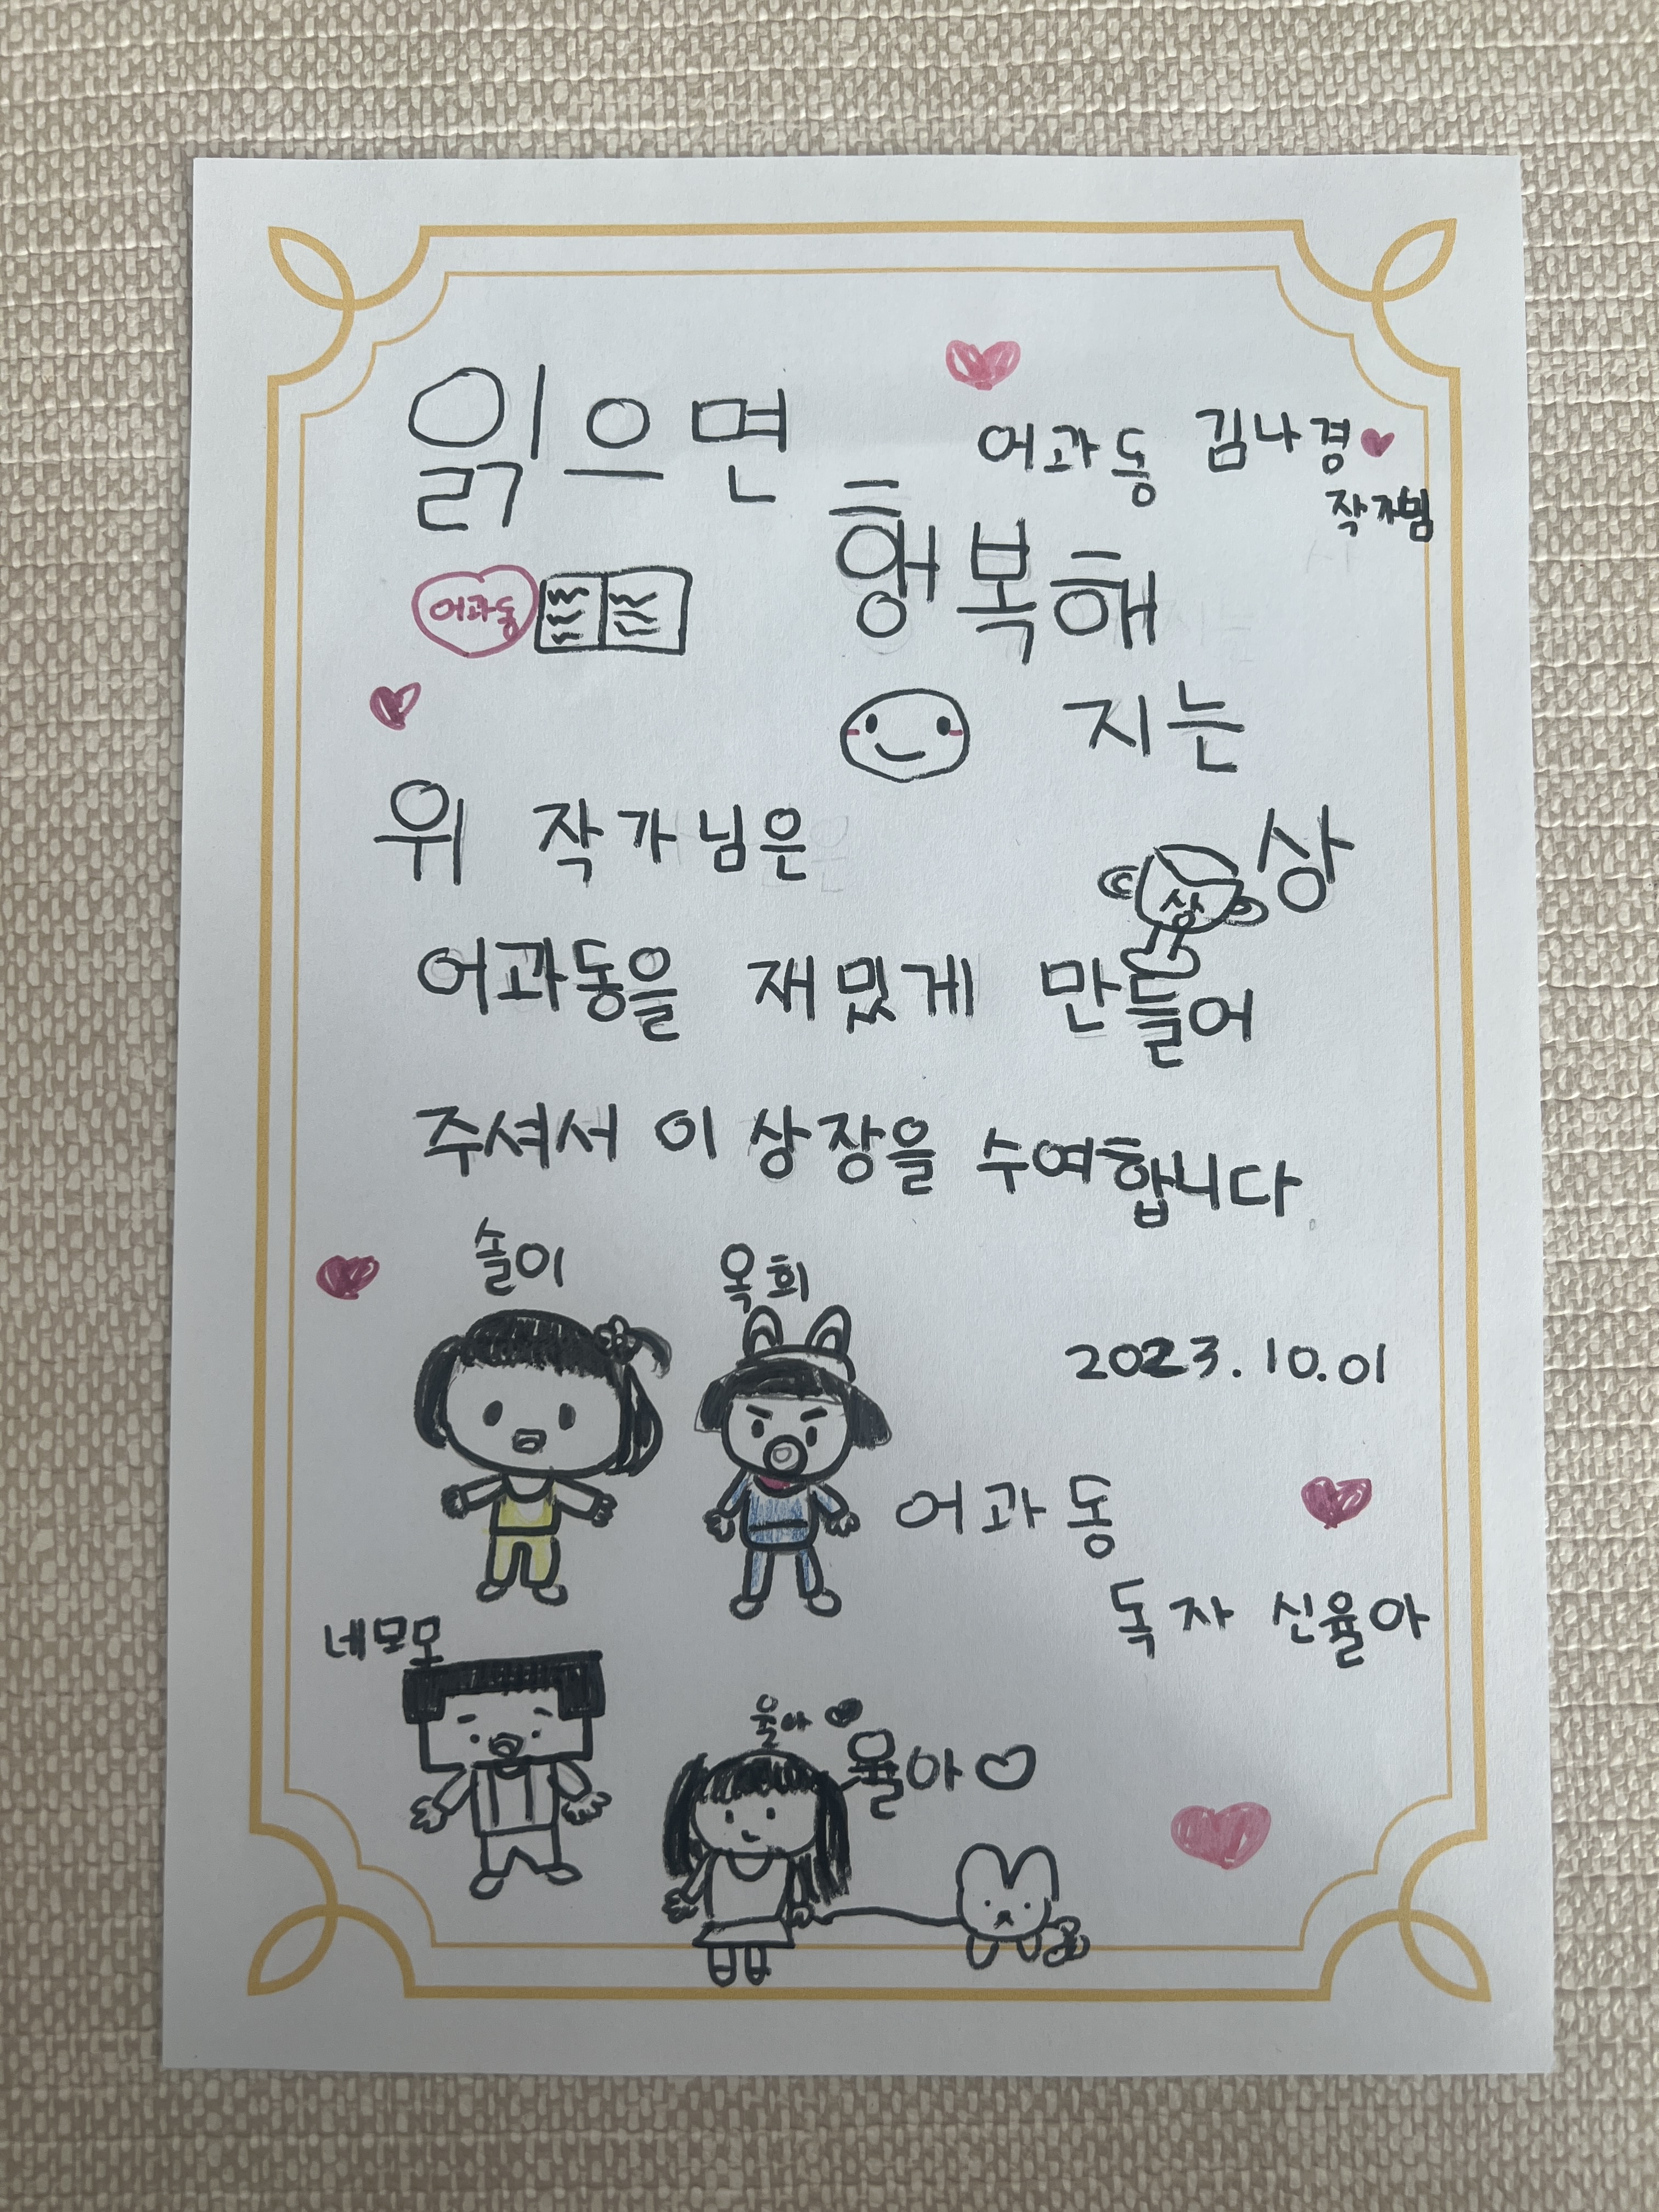 읽으면
어과동 김나경
작가님
행복해
어과동
지는
상
상
위 작가님은
어과동을 재밌게 만들어
주셔서 이 상장을 수여합니다.
솔이
옥희
2023.10.01
어과동
독자 신율아
네모모
율아
율아